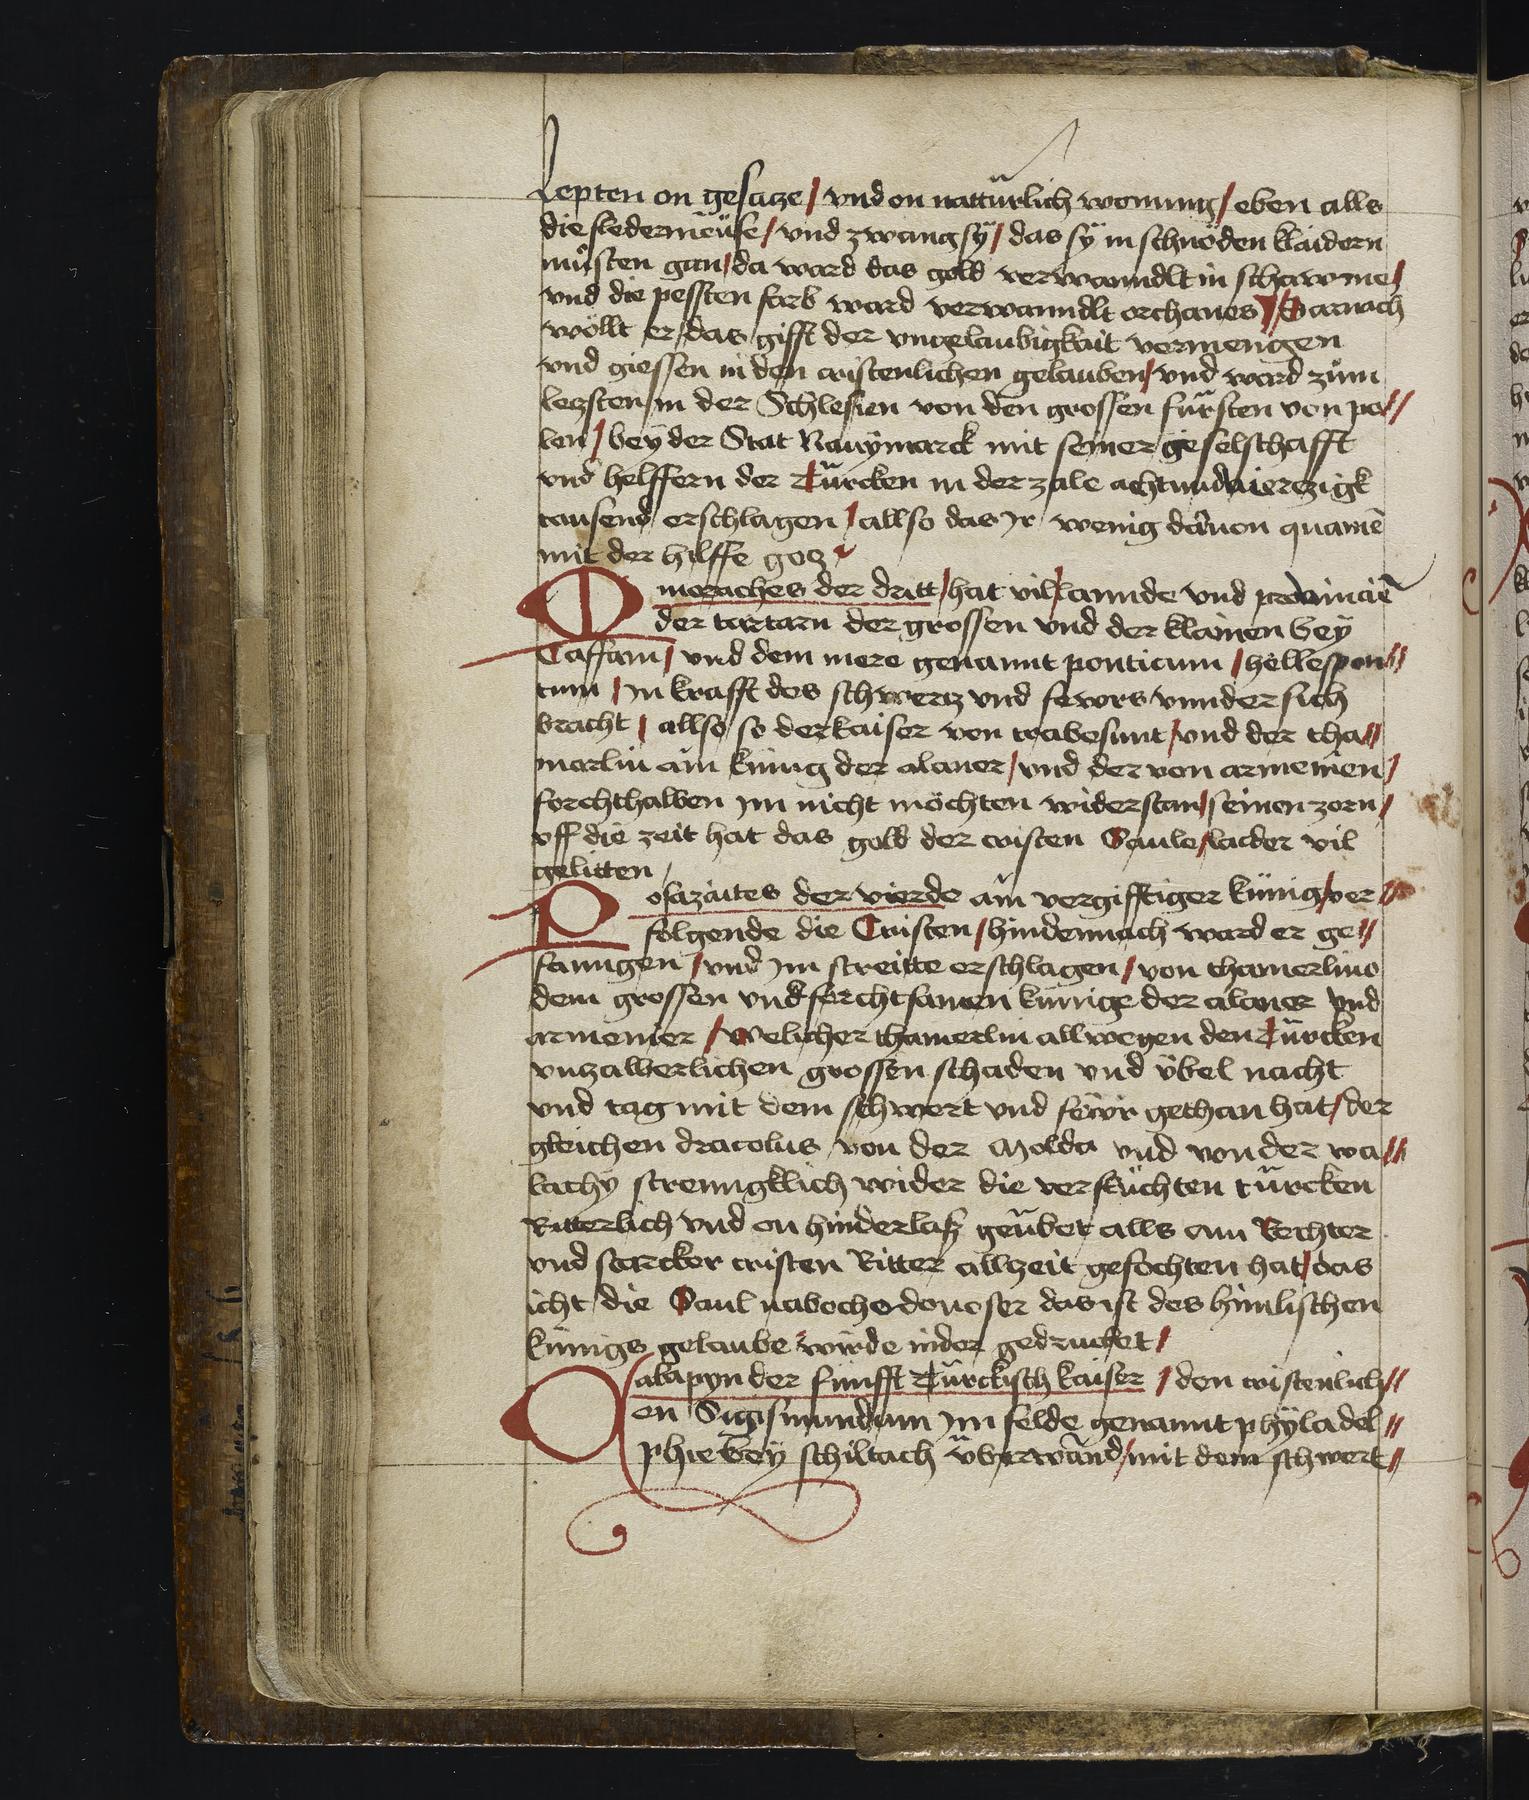 Lepten on gesacze / vnd on natturlich wonung / eben alls
die fledermeüse / vnd zwang sÿ / das sÿ in schnöden klaidern
muͦsten gan / da ward das gold verwanndlt in schawme /
vnd die pessten farb ward verwanndlt orchanes // Darnach
wöllt er das gifft der vngelaubigkait vermengen
vnd giessen in den cristenlichen gelauben / vnd ward zuͦm
leczsten in der Schlesien von den grossen fürsten von po //
len / beÿ der Stat Nauÿmarck mit seiner geselschafft
vnd helffern der Türcken in der zale achtundvierczigk
tausend erschlagen / allso das jr wenig dauon quamē
mit der hilffe gocz
Amoraches der dritt / hat vil lannde vnd prouinciē
der tartarn der grossen vnd der klainen beÿ
Caffam / vnd dem mere genannt ponticum / hellespon //
tum / jn krafft des schwertz vnd fewrs vnnder sich
bracht / allso so der kaiser von trabesunt / vnd der tha //
merlin ain künig der alaner / vnd der von armenien /
forchthalben jm nicht möchten widerstan / seinen zorn /
vff die zeit hat das gold der cristen Saule / laider vil
gelitten
Posazaites der vierde ain vergifftiger künig / ver //
folgende die Cristen / hindennach ward er ge //
fanngen / vnd jm streitte erschlagen / von thamerlino
dem grossen vnd forchtsamen künige der alaner vnd
armenier / welicher thamerlin allwegen den Türcken
vnzalberlichen grossen schaden vnd übel nacht
vnd tag mit dem schwert vnd fewr gethan hat / der
gleichen dracolus von der Molda vnd von der wa //
lachÿ strenngklich wider die verflüchten türcken
Ritterlich vnd on hinderlasz geübet alls ain Rechter
vnd starcker cristen Ritter allzeit gefochten hat / das
icht die Saul nabochodonoser das ist des himlischen
künigs gelaube würde nider gedrucket /
Calapyn der fünfft Türckisch kaiser / den cristenlich //
en Sigismundum jm felde genannt phÿladel //
phie beÿ schiltach überwand / mit dem schwert //